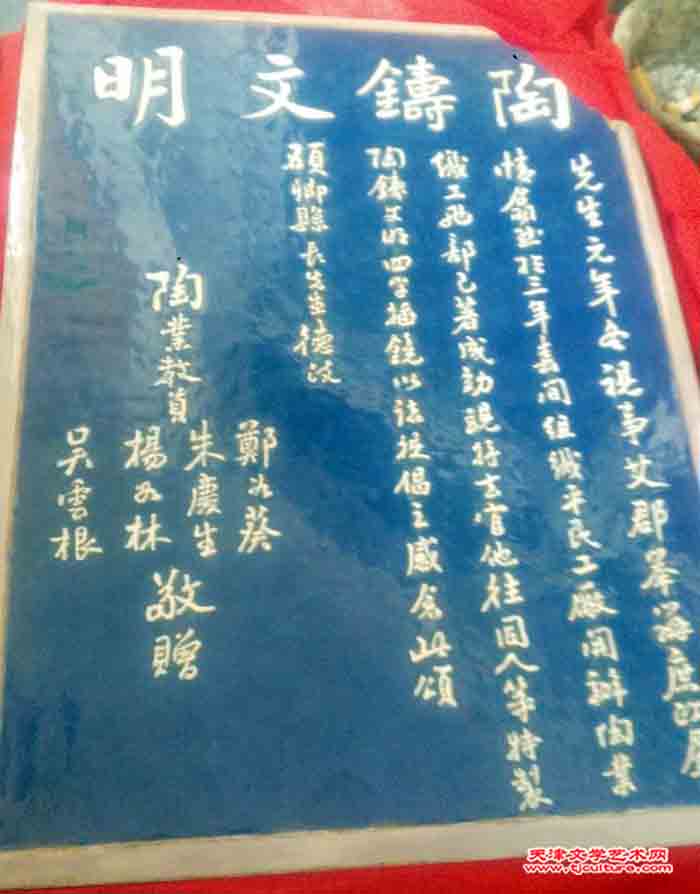 陶鑄文明
先生元年冬視事艾郡舉
於三年春間組織平民工廠開辦陶業
織工兩部已著成効現將去官他往同人等特製
陶鑄文明四字插鏡以誌提倡之感念此頌
縣長先生德政
陶業教員
鄭 葵
朱慶生
楊 林
吴雲根
敬贈
天津文学艺术网
www.tjculture.com